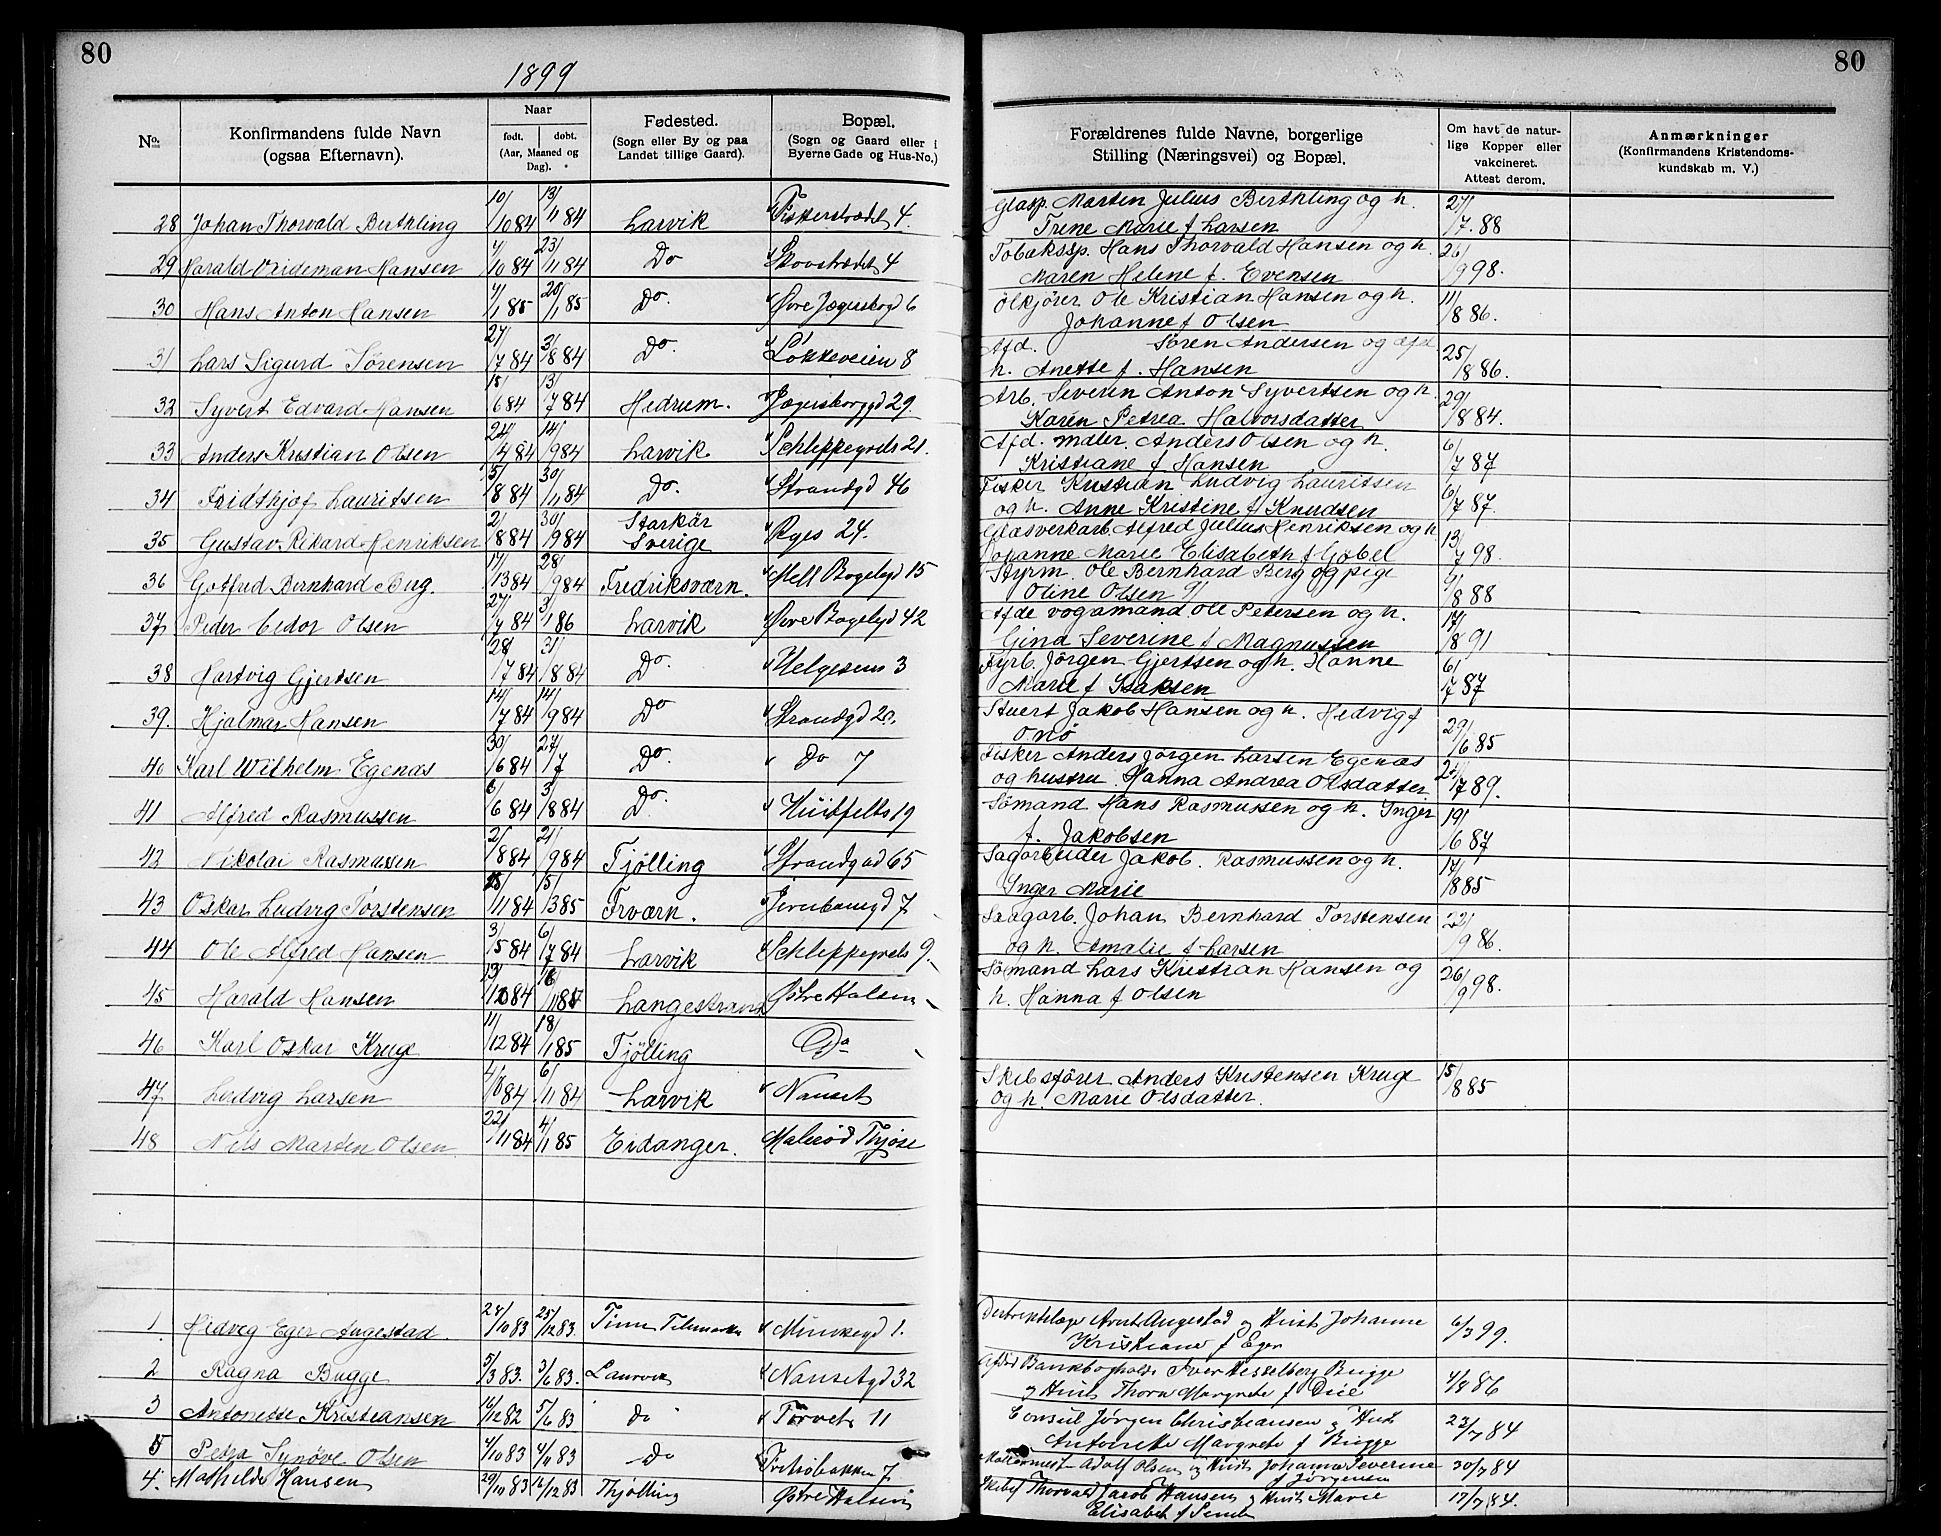 80
1899
No.
Konfirmandens fulde Navn
(ogsaa Efternavn).
Naar
født. døbt.
(Aar, Maaned og
Dag).
Fødested.
(Sogn eller By og paa
Landet tillige Gaard).
Bopæl.
(Sogn og Gaard eller i
Byerne Gade og Hus-No.)
28 Johan Thorvald Berthling 10/10 84 13/11 84 Larvik Fiskerstrædet 4.
29 Harald Videman Hansen 4/10 84 23/11 84 Do Skovstrædet 4
30 Hans Anton Hansen 4/1 85 20/1 85 Do. Øvre Jægerskogd 6
31 Lars Sigurd Sørensen 27/7 84 3/8 84 Do. Løkkeveien 8
32 Syvert Edvard Hansen 15/6 84 13/7 84 Hedrum. Jægerskorgyd 29.
33 Anders Kristian Olsen 24/4 84 14/9 84 Larvik Schleppegrels 21.
34 Fridthjof Lauritsen 5/8 84 30/11 84 Do. Strandgd 46
35 Gustav Rikard Henriksen 2/8 84 30/9 84 Starkär Sverige Ryes 24.
36 Gotfred Bernhard Berg. 17/13 84 28/9 84 Fredriksværn. Mell Bøgelyd 15
37 Peder Cedor Olsen 27/7 84 3/1 86 Larvik Øvre Bøgelyd 42
38 Hartvig Gjertsen 28/7 84 31/8 84 Do. Helgesens 3
39. Hjalmar Hansen 14/7 84 14/9 84 Do Strandgd 20.
40 Karl Wilhelm Egenæs 30/6 84 27/7 Do. Do 7
41 Alfred Rasmussen 6/6 84 3/8 84 Do. Huitfelts 19
42 Nikolai Rasmussen 2/8 84 21/9 84 Tjølling Strandgad 65
43 Oskar Ludvig Torstensen 28/11 84 15/3 85 Frværn. Jernbanegd 7
44 Ole Alfred Hansen 3/5 84 6/7 84 Larvik Schleppegrels 9.
45 Harald Hansen 13/10 84 16/11 87 Langestrand Østre Halsen
46 Karl Oskar Kruge 11/12 84 18/1 85 Tjölling Do
47 Ludvig Larsen 4/8 84 6/11 84 Larvik Nanset
48 Nils Marten Olsen 22/11 84 4/1 85 Eidanger. Malerød Thjøse
1. Hedvig Eger Augestad. 28/10 83 25/12 83. Tinn Telemarken Munkegd 1.
2 Ragna Bugge 5/3 83. 3/6 83. Laurvik Nansetgd 32
3 Antonette Kristiansen 16/12 82 5/6 83 do Torvet 11
5 Petra Synøve Olsen 4/10 83 4/11 83 do Fritzøbakken 7
4. Mathilde Hansen 29/10 83 16/12 83 Thjølling Østre Halsen
80
Forældrenes fulde Navne, borgerlige
Stilling (Næringsvei) og Bopæl.
Om havt de natur-
lige Kopper eller
vakcineret.
Attest derom.
Anmærkninger
(Konfirmandens Kristendoms-
kundskab m. V.)
Glasp. Marten Julius Berthling og h. 27/7. 88
Trene Marie f Larsen
Tobakssp. Hans Thorvald Hansen og h. 26/9 98.
Maren Helene f. Evensen
Ölkjörer Ole Kristian Hansen og h. 11/8 86.
Johanne f Olsen
Afd. Sören Andersen og afd. 25/8 86.
h. Anette f. Hansen
Arb. Severin Anton Syvertsen og h. 29/8 84.
Karen Petrea Halvorsdatter
Afd. maler. Anders Olsen og h. 6/7 87
Kristiane f Hansen
Fisker Kristian Ludvig Lauritsen 6/7 87.
og h. Anne Kristine f Knudsen
Glasverkarb. Alfred Julius Henriksen og h 13/7 98.
Johanne Marie Elisabeth f Göbel
Styrm. Ole Bernhard Berg og pige 4/8 88
Oline Olsen
Afde vogamand Ole Petersen og h. 17/8 91
Gina Severine f Magnussen
Fyrb. Jörgen Gjertsen og h. Hanne 6/7 87
Marie f Isaksen
Stuert Jakob Hansen og h. Hedvig f 29/6 85
Onö
Fisker Anders Jörgen Larsen Egenæs
og hustru Hanna Andrea Olsdatter 21/7 89.
Sömand Hans Rasmussen og h. Inger 19/6 87
f. Jakobsen
Sagarbeider Jakob. Rasmussen og h. 17/8 85
Inger Marie
Saagarb. Johan Bernhard Torstensen 22/9 86.
og h. Amalie f Larsen
Sömand Lars Kristian Hansen og 26/9 98.
h. Hanna f Olsen
Skibsförer Anders Kristensen Kruge 15/8 85
og h. Marie Olsdatter.
Destriktslæge Arnt Augestad og Hust Johanne 6/3 99.
Kristiane f Eger
Afdöd Bankbogholder Iver Hesselberg Bugge 4/8 86
og Hust Thora Margrete f Due
Consul Jörgen Christiansen og Hust 23/7 84
Antonette Margrete f Bugge
Adolf Olsen og Hust Johanne Severine 30/7 84
f Jörgensen
Skibsf Thorvald Jacob Hansen og Hust Marie 17/7 84.
Elisabet f